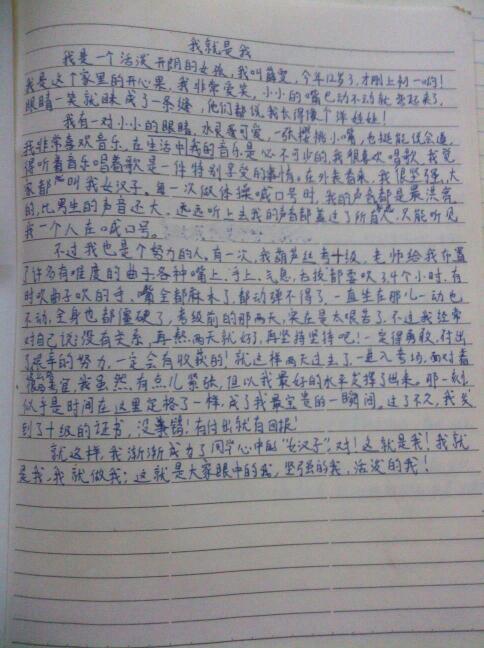 我就是我
我是一个活泼开朗的女孩,我叫薛雯,今年12岁了,才刚上初一哟!
我是这个家里的开心果,我非常爱笑,小小的嘴巴动不动就
眼睛一笑就眯成了一条缝,他们都说我长得像个洋娃娃!
我有一对小小的眼睛,水灵可爱,一张樱桃小嘴,也挺能说会道,
我非常喜欢音乐,在生活中我的音乐是必不可少的,我很喜欢唱歌,我觉
得听着音乐唱着歌是一件特别享受的事情。在外表看来,我很坚强,大
家都叫我女汉子。每一次做体操喊口号时,我的声音都是最洪亮
的,比男生的声音还大。远远听上去我的声音都盖过了所有人,只能听见
我一个人在喊口号。
不过我也是个努力的人,有一次,我葫芦丝考十级,老师给我布置
了许多有难度的曲子各种嘴上、手上、气息、舌技都要吹3、4个小时,有
时吹曲子吹的手、嘴全都麻木了,都动弹不得了,一直坐在那儿一动也
不动,全身也都僵硬了,考级前的那两天,实在是太艰苦了,不过我经常
对自己说:没有关系,再熬两天就好了,再坚持坚持吧!一定得勇敢,付出
了艰辛的努力,一定会有收获的!就这样两天过去了,一进入考场,面对着
考官,我虽然有点儿紧张,但以我最好的水平发挥了出来。那一刻,
似乎是时间在这里定格了一样,成了我最宝贵的一瞬间。过了不久,我拿
到了十级的证书,没错!有付出就有回报!
就这样,我渐渐成为了同学心中的“女汉子”,对!这就是我!我就
是我,我就做我;这就是大家眼中的我,坚强的我,活泼的我!